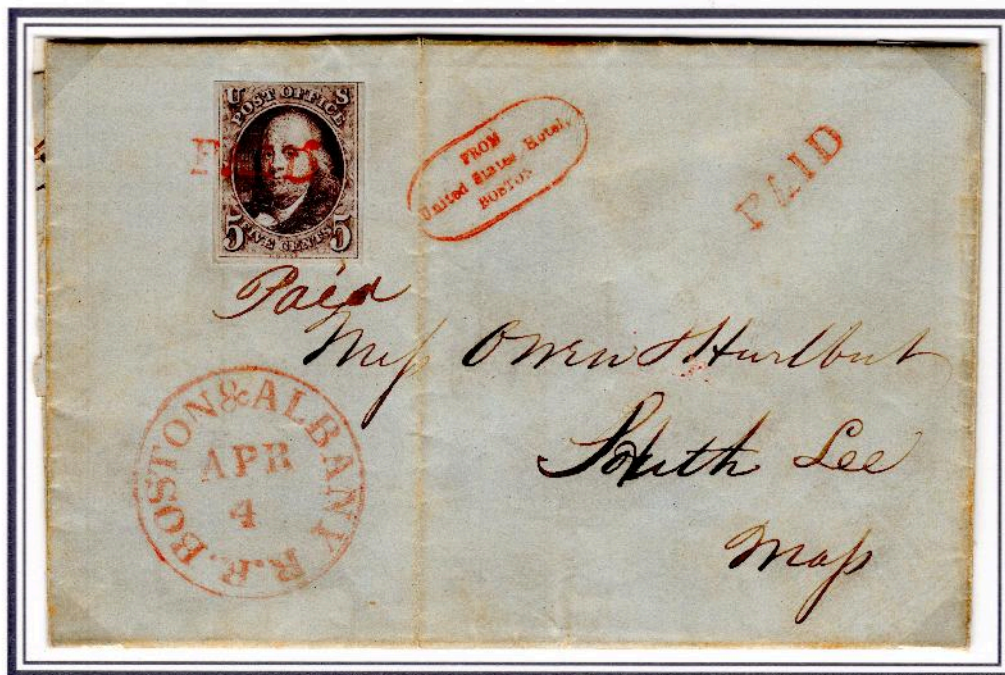 U S
POST OFFICE
5 FIVE CENTS 5
PAID
FROM
United States Hotel,
BOSTON
PAID
Paid
Mess Owen & Hurlbut
South Lee
Mass
BOSTON & ALBANY R.R.
APR
4